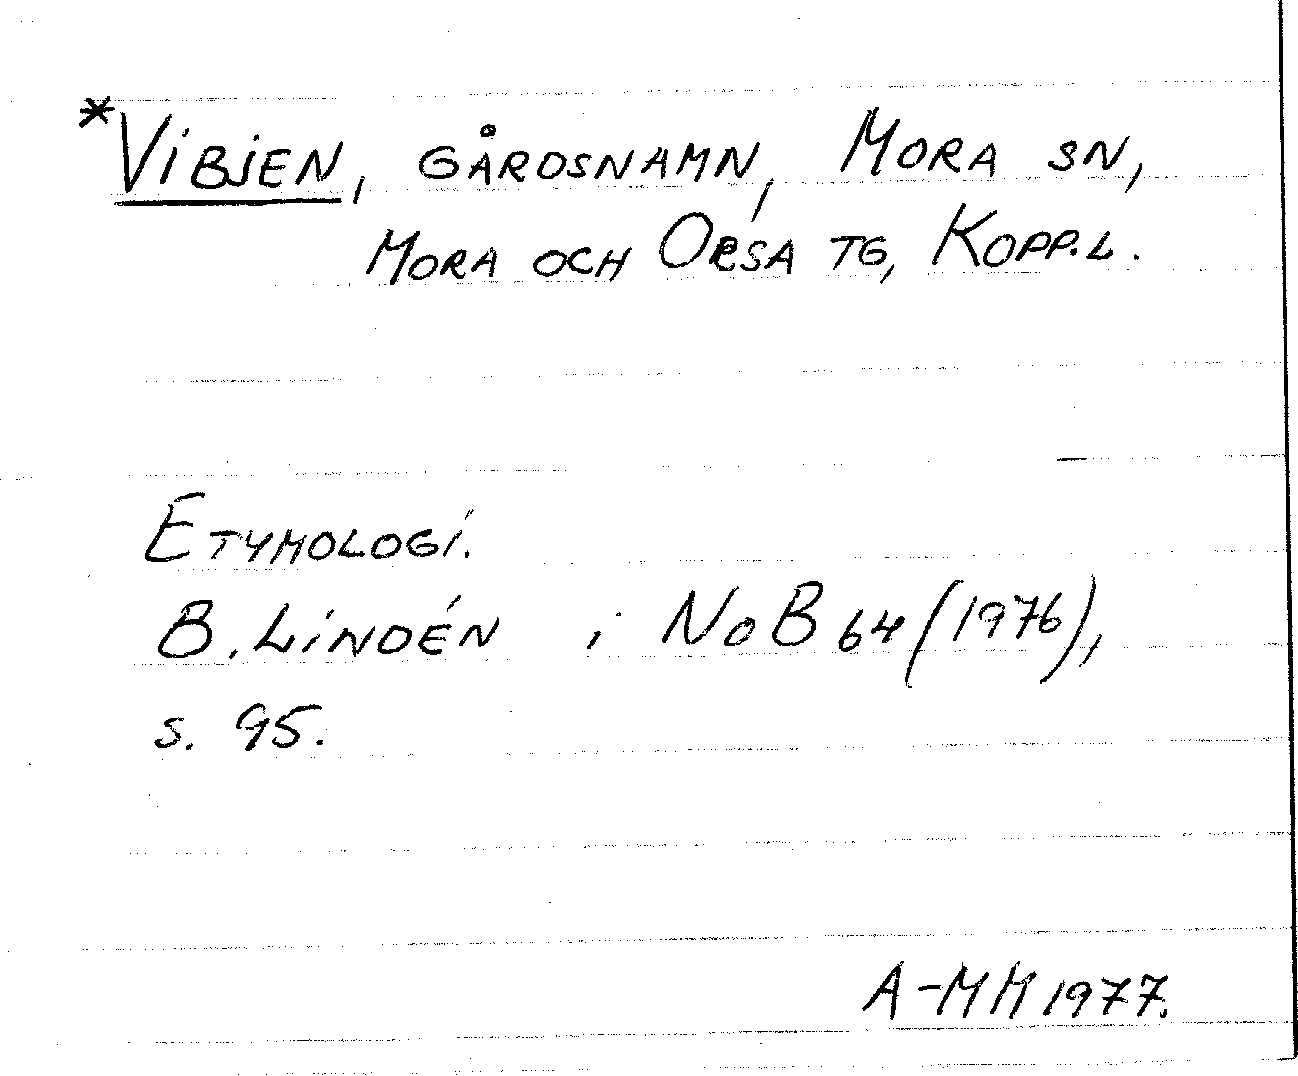 *Vibjen, gårdsnamn, Mora sn,
Mora och Orsa tg, Kopp.l.
Etymologi.
B. Lindén i NoB 64 (1976),
s. 95.
A-MH 1977.